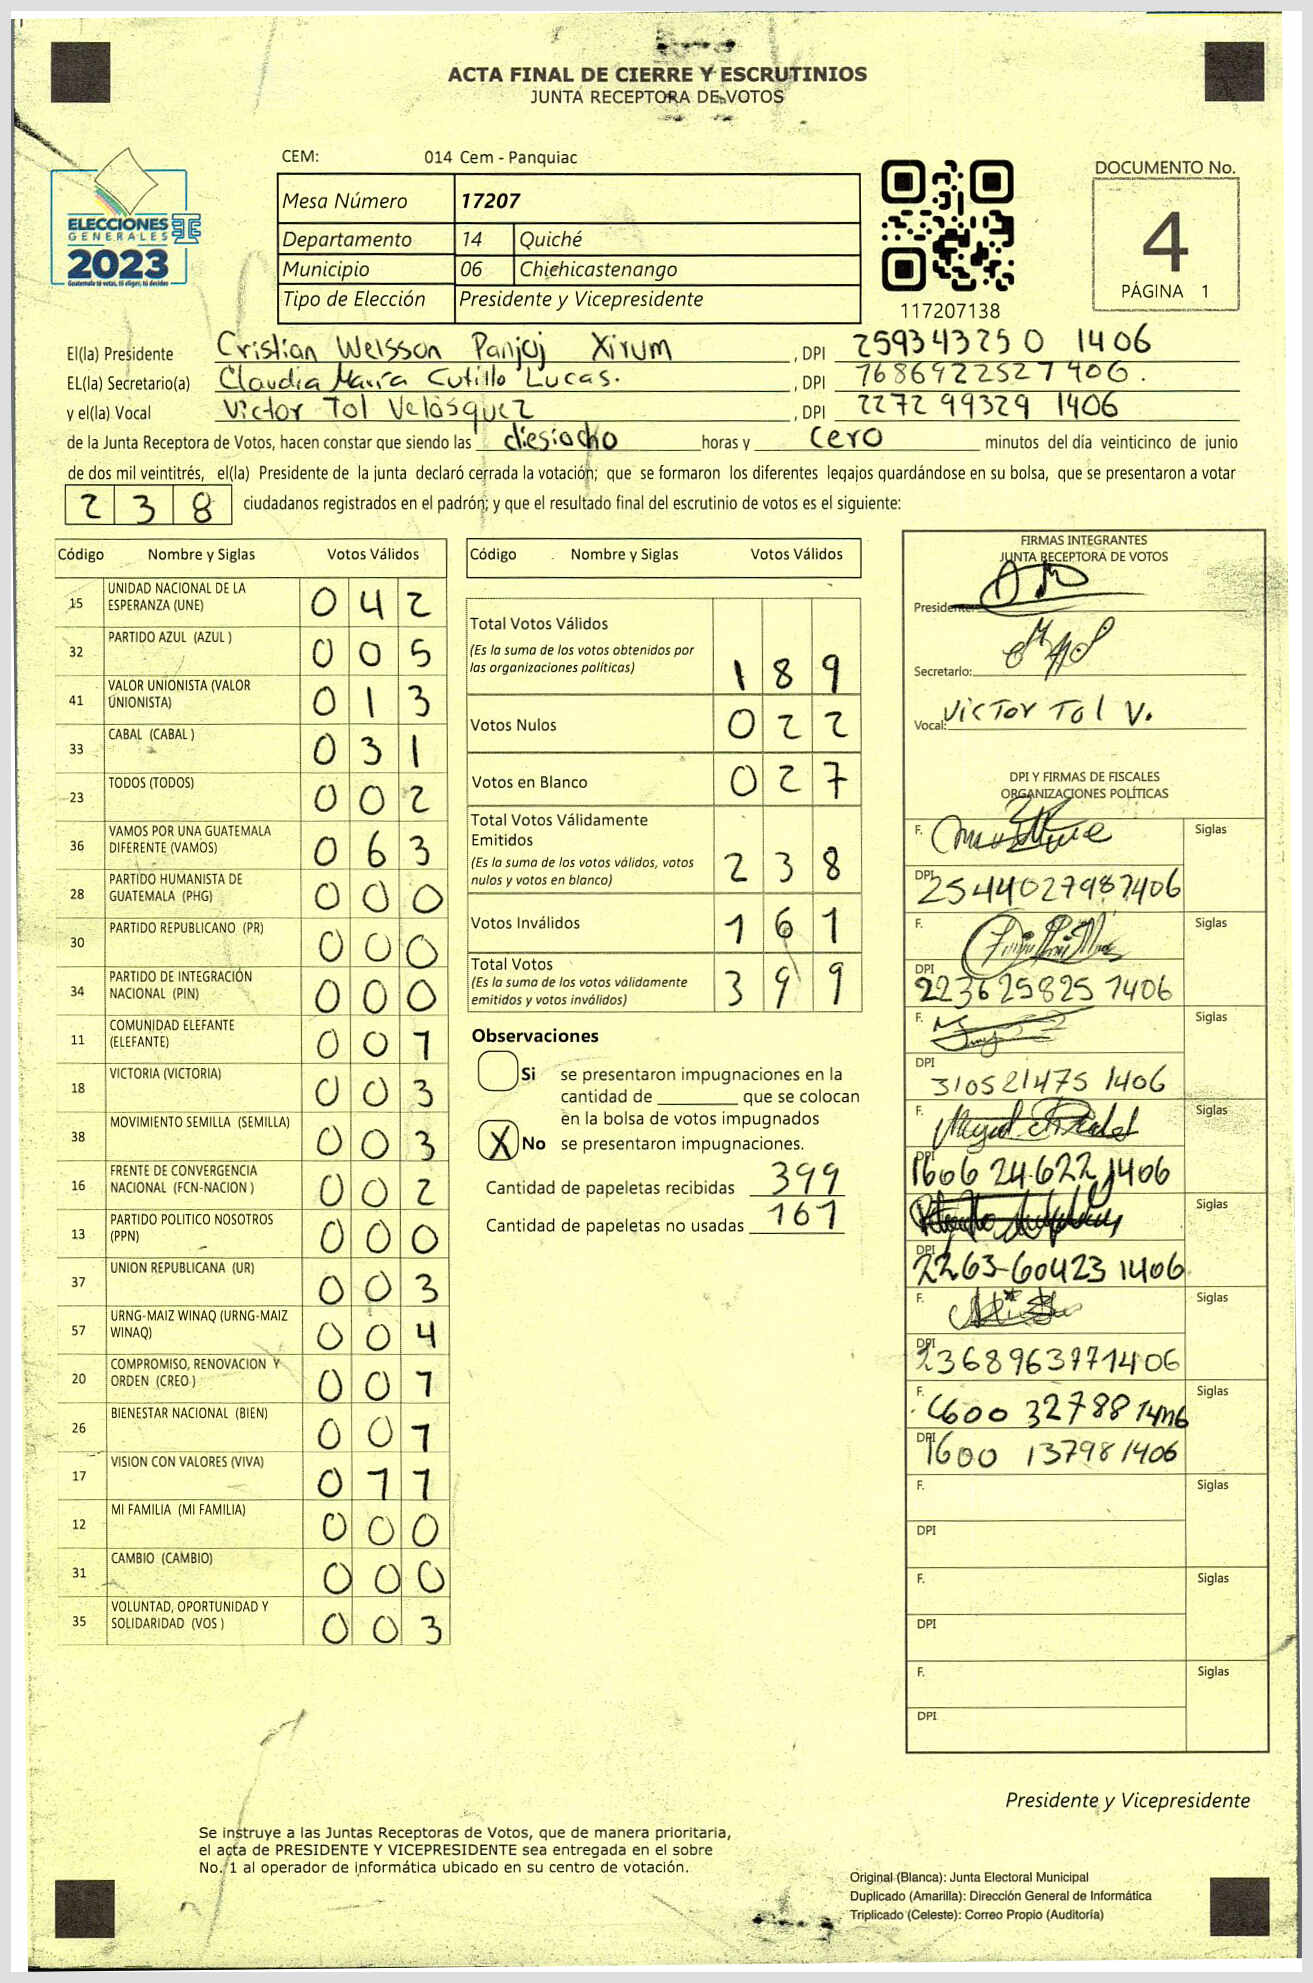 ACTA FINAL DE CIERRE Y ESCRUTINIOS
JUNTA RECEPTORA DE VOTOS
CEM: 014 Cem - Panquiac
Mesa Número 17207
Departamento 14 Quiché
Municipio 06 Chichicastenango
Tipo de Elección Presidente y Vicepresidente
ELECCIONES
GENERALES
2023
Guatemala tú votas, tú eliges, tú decides
117207138
DOCUMENTO No.
4
PÁGINA 1
El(la) Presidente Cristian Welsson Panjoj Xirum , DPI 259343250 1406
EL(la) Secretario(a) Claudia María Cutillo Lucas. , DPI 7686922527406.
y el(la) Vocal Victor Tol Velásquez , DPI 2272 99329 1406
de la Junta Receptora de Votos, hacen constar que siendo las diesiocho horas y cero minutos del día veinticinco de junio
de dos mil veintitrés, el(la) Presidente de la junta declaró cerrada la votación; que se formaron los diferentes legajos quardándose en su bolsa, que se presentaron a votar
238 ciudadanos registrados en el padrón; y que el resultado final del escrutinio de votos es el siguiente:
Código Nombre y Siglas Votos Válidos
15 UNIDAD NACIONAL DE LA ESPERANZA (UNE) 042
32 PARTIDO AZUL (AZUL ) 005
41 VALOR UNIONISTA (VALOR UNIONISTA) 013
33 CABAL (CABAL ) 031
23 TODOS (TODOS) 002
36 VAMOS POR UNA GUATEMALA DIFERENTE (VAMOS) 063
28 PARTIDO HUMANISTA DE GUATEMALA (PHG) 000
30 PARTIDO REPUBLICANO (PR) 000
34 PARTIDO DE INTEGRACIÓN NACIONAL (PIN) 000
11 COMUNIDAD ELEFANTE (ELEFANTE) 001
18 VICTORIA (VICTORIA) 003
38 MOVIMIENTO SEMILLA (SEMILLA) 003
16 FRENTE DE CONVERGENCIA NACIONAL (FCN-NACION ) 002
13 PARTIDO POLITICO NOSOTROS (PPN) 000
37 UNION REPUBLICANA (UR) 003
57 URNG-MAIZ WINAQ (URNG-MAIZ WINAQ) 004
20 COMPROMISO, RENOVACION Y ORDEN (CREO ) 001
26 BIENESTAR NACIONAL (BIEN) 001
17 VISION CON VALORES (VIVA) 011
12 MI FAMILIA (MI FAMILIA) 000
31 CAMBIO (CAMBIO) 000
35 VOLUNTAD, OPORTUNIDAD Y SOLIDARIDAD (VOS ) 003
Código Nombre y Siglas Votos Válidos
Total Votos Válidos
(Es la suma de los votos obtenidos por
las organizaciones políticas) 189
Votos Nulos 022
Votos en Blanco 027
Total Votos Válidamente
Emitidos
(Es la suma de los votos válidos, votos
nulos y votos en blanco) 238
Votos Inválidos 161
Total Votos
(Es la suma de los votos válidamente
emitidos y votos inválidos) 399
Observaciones
Si se presentaron impugnaciones en la
cantidad de ________ que se colocan
en la bolsa de votos impugnados
X No se presentaron impugnaciones.
Cantidad de papeletas recibidas 399
Cantidad de papeletas no usadas 161
FIRMAS INTEGRANTES
JUNTA RECEPTORA DE VOTOS
Presidente:
Secretario:
Vocal: Victor Tol V.
DPI Y FIRMAS DE FISCALES
ORGANIZACIONES POLÍTICAS
F. Siglas
DPI 2544027981406
F. Siglas
DPI 223625825 1406
F. Siglas
DPI 310521475 1406
F. Siglas
DPI 1606 24622 1406
F. Siglas
DPI 2263-60423 1406
F. Siglas
DPI 2368963971406
F. Siglas
DPI 1600 137981406
F. Siglas
DPI
F. Siglas
DPI
F. Siglas
DPI
Presidente y Vicepresidente
Se instruye a las Juntas Receptoras de Votos, que de manera prioritaria,
el acta de PRESIDENTE Y VICEPRESIDENTE sea entregada en el sobre
No. 1 al operador de informática ubicado en su centro de votación.
Original (Blanca): Junta Electoral Municipal
Duplicado (Amarilla): Dirección General de Informática
Triplicado (Celeste): Correo Propio (Auditoría)